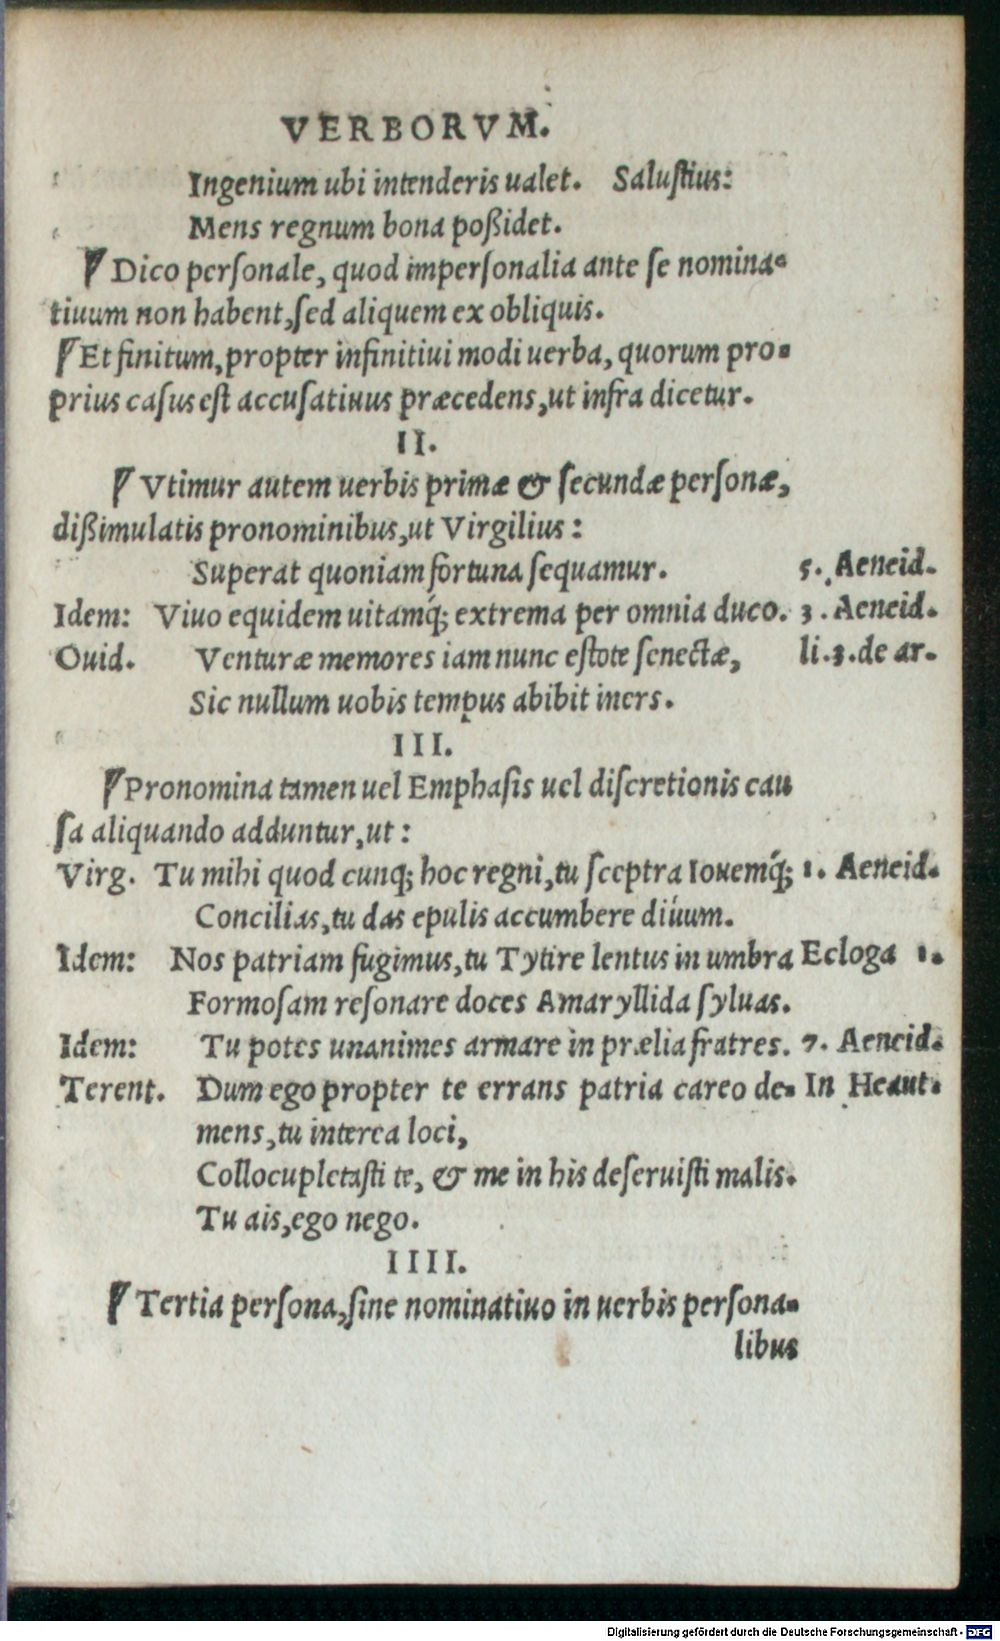 VERBORVM.
Ingenium ubi intenderis ualet. Saluſtius:
Mens regnum bona poßidet.
¶ Dico perſonale, quod imperſonalia ante ſe nomina-
tiuum non habent, ſed aliquem ex obliquis.
¶ Et finitum, propter infinitiui modi uerba, quorum pro-
prius caſus eſt accuſatiuus præcedens, ut infra dicetur.
II.
¶ Vtimur autem uerbis primæ & ſecundæ perſonæ,
dißimulatis pronominibus, ut Virgilius:
Superat quoniam fortuna ſequamur. 5. Aeneid.
Idem: Viuo equidem uitamq́; extrema per omnia duco. 3. Aeneid.
Ouid. Venturæ memores iam nunc eſtote ſenectæ, li.3.de ar.
Sic nullum uobis tempus abibit iners.
III.
¶ Pronomina tamen uel Emphaſis uel diſcretionis cau
ſa aliquando adduntur, ut:
Virg. Tu mihi quod cunq; hoc regni, tu ſceptra Iouemq́; 1. Aeneid.
Concilias, tu das epulis accumbere diuum.
Idem: Nos patriam fugimus, tu Tytire lentus in umbra Ecloga 1.
Formoſam reſonare doces Amaryllida ſyluas.
Idem: Tu potes unanimes armare in prælia fratres. 7. Aeneid.
Terent. Dum ego propter te errans patria careo de- In Heaut.
mens, tu interea loci,
Collocupletaſti te, & me in his deſeruiſti malis.
Tu ais, ego nego.
IIII.
¶ Tertia perſona, ſine nominatiuo in uerbis perſona-
libus
Digitalisierung gefördert durch die Deutsche Forschungsgemeinschaft - DFG